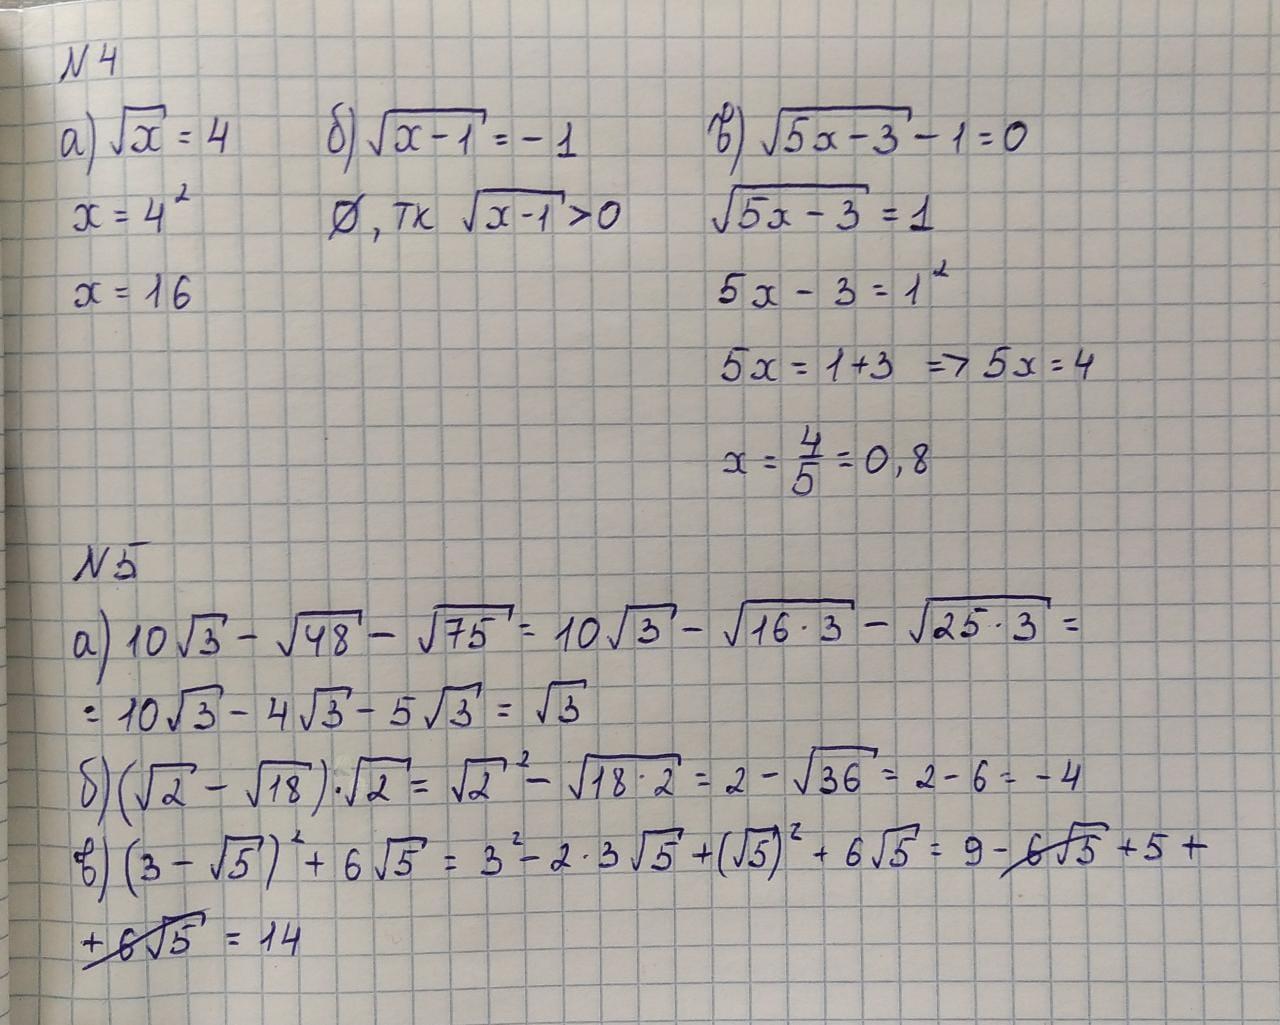 N4
а) √x = 4
x = 4²
x = 16
б) √(x-1) = -1
∅, тк √(x-1) > 0
в) √(5x-3) - 1 = 0
√(5x-3) = 1
5x - 3 = 1²
5x = 1+3 => 5x = 4
x = 4/5 = 0,8
N5
а) 10√3 - √48 - √75 = 10√3 - √(16·3) - √(25·3) =
= 10√3 - 4√3 - 5√3 = √3
б) (√2 - √18)·√2 = √2² - √(18·2) = 2 - √36 = 2 - 6 = -4
в) (3 - √5)² + 6√5 = 3² - 2·3√5 + (√5)² + 6√5 = 9 - 6√5 + 5 +
+ 6√5 = 14